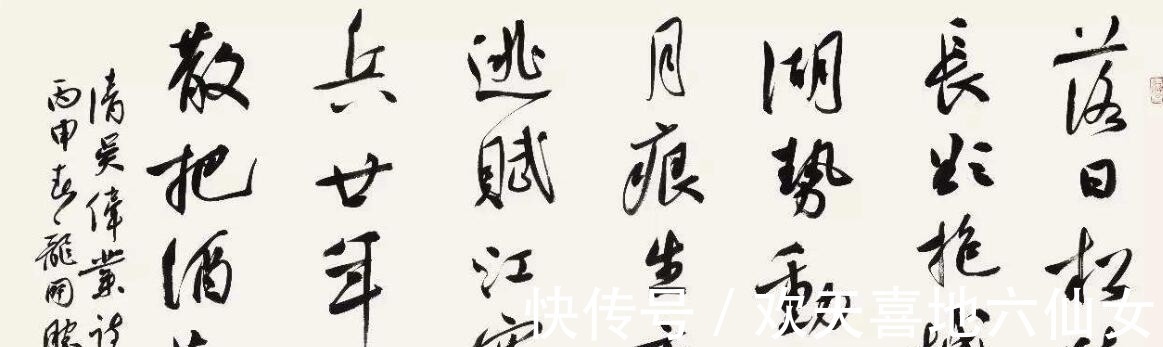 落日松
長欲抱城
湖勢動
月痕生
逃賦江寬
兵廿年
散把酒
清吳偉業詩
丙申春龍開勝
快传号 / 欢天喜地六仙女